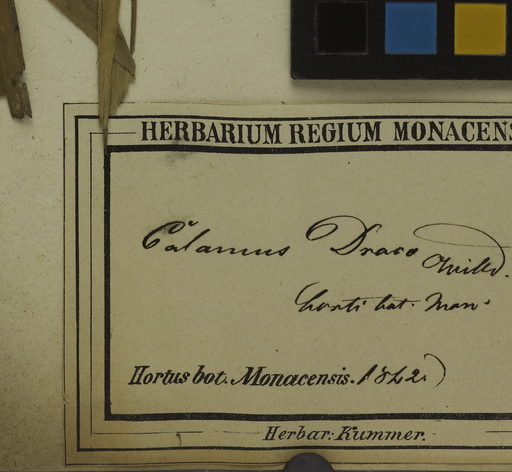 HERBARIUM REGIUM MONACENS
Calamus Draco Willd.
horti bot. Mon.
Hortus bot. Monacensis. 1842.)
Herbar: Kummer.